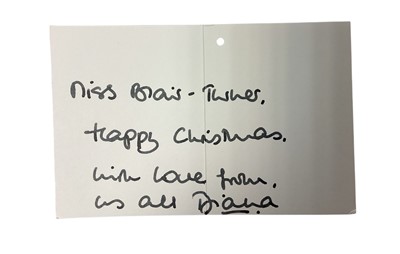 Miss Blair-Turner,
Happy Christmas.
with love from,
us all Diana